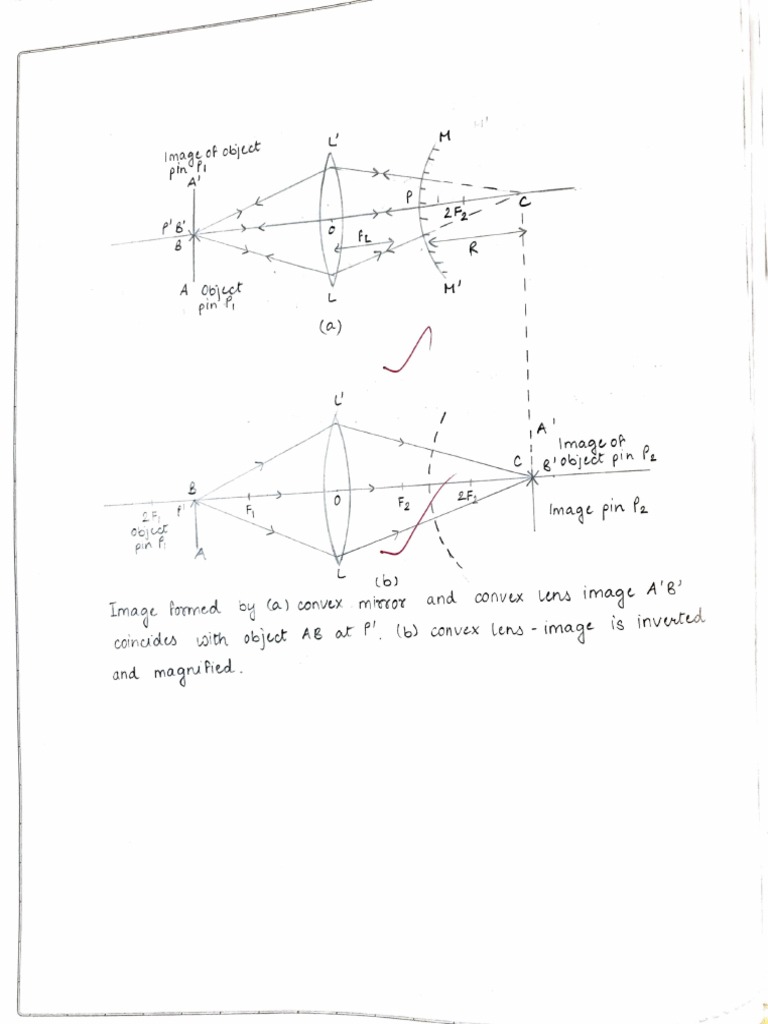 L'
M
M'
Image of object
pin P1
A'
P
C
2F2
P' B'
B
O
FL
R
A Object
pin P1
L
M'
(a)
L'
A'
Image of
C B' object pin P2
B
P'
2F1
F1
O
F2
2F2
Object
pin P1
A
Image pin P2
L
(b)
Image formed by (a) convex mirror and convex lens image A'B'
coincides with object AB at P'. (b) convex lens - image is inverted
and magnified.